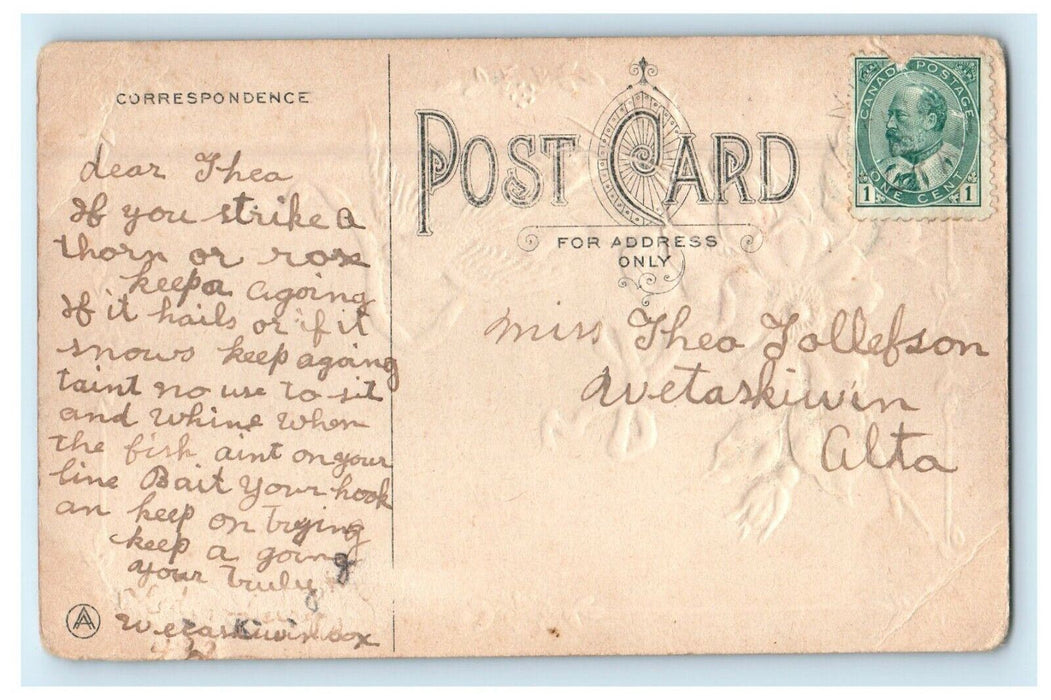 CORRESPONDENCE
dear Thea
If you strike a
thorn or rose
keep a agoing
If it hails or if it
snows keep agoing
taint no use to sit
and whine when
the fish aint on your
line Bait Your hook
an keep on trying
keep a going
your Truly
Wetaskiwin box
POST CARD
FOR ADDRESS
ONLY
CANADA POSTAGE
1 ONE CENT 1
Miss Thea Tollefson
Wetaskiwin
Alta